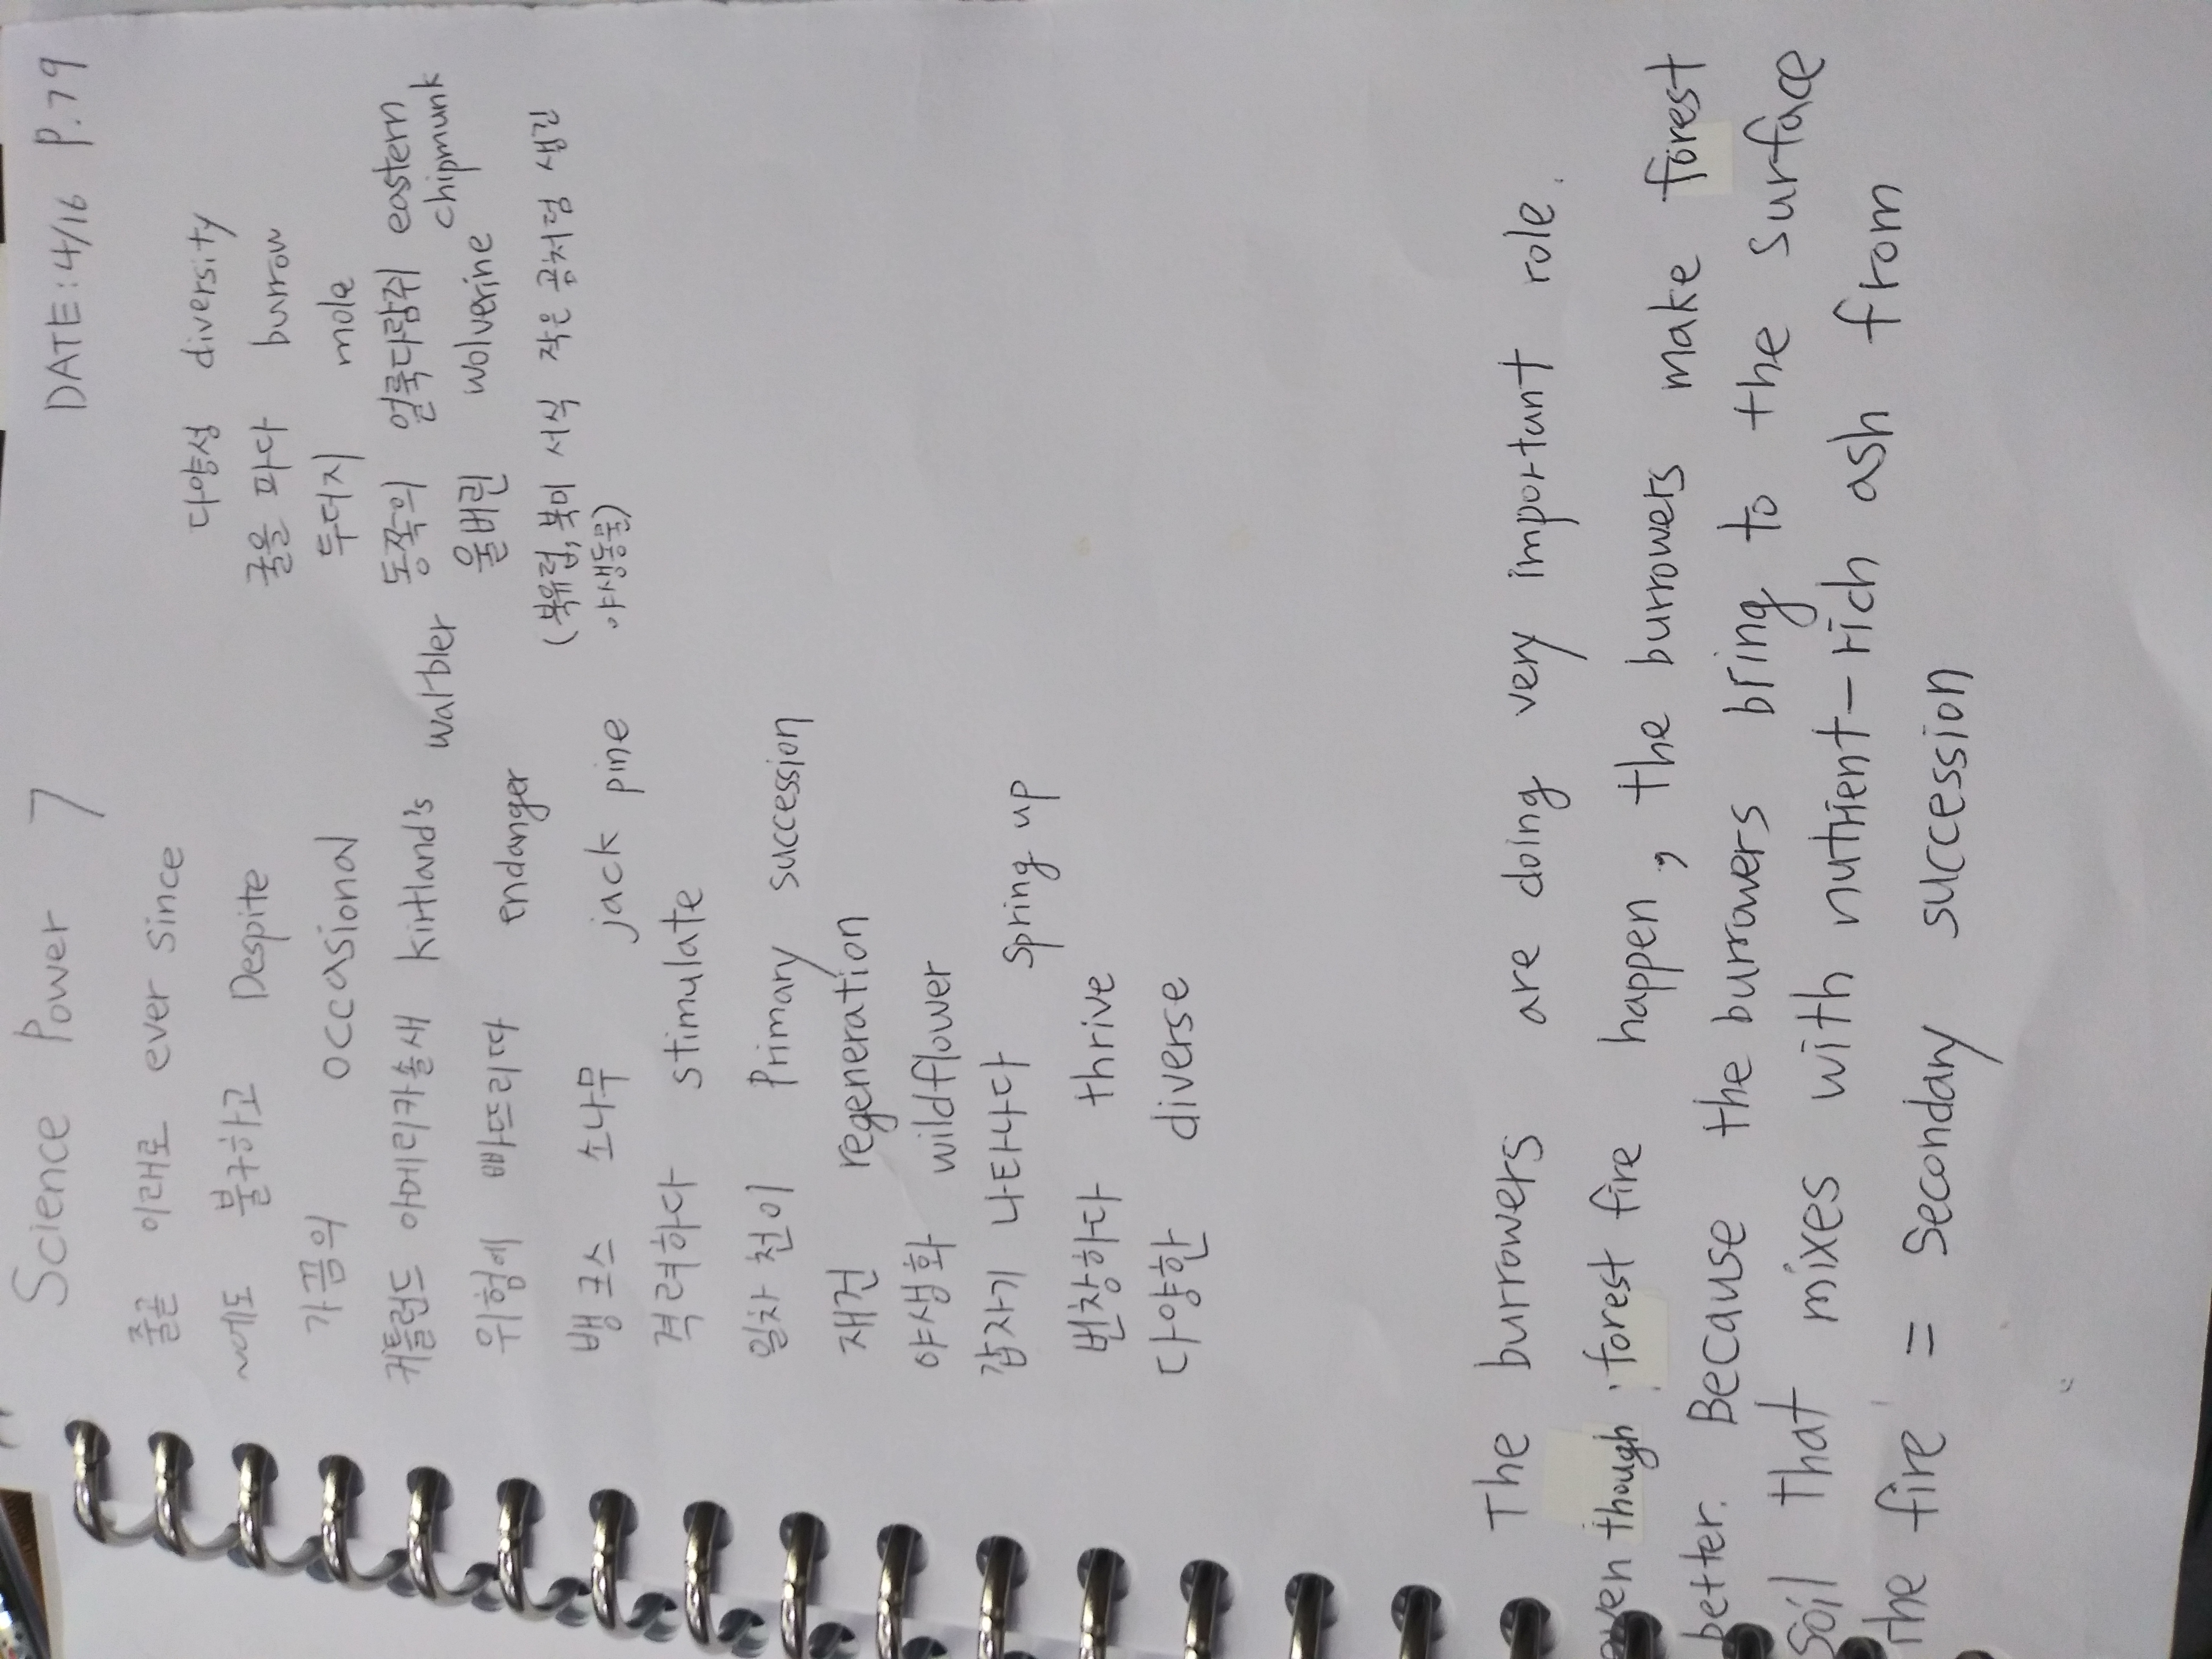 Science Power 7 DATE: 4/16 P.79
줄곧 이래로 ever since
~에도 불구하고 Despite
가끔의 occasional
커틀런드 아메리카솔새 kirtland's warbler
위험에 빠뜨리다 endanger
뱅크스 소나무 jack pine
격려하다 stimulate
일차 천이 Primary succession
재건 regeneration
야생화 wildflower
갑자기 나타나다 spring up
번창하다 thrive
다양한 diverse
다양성 diversity
굴을 파다 burrow
두더지 mole
동쪽의 얼룩다람쥐 eastern
chipmunk
울버린 wolverine
(북유럽,북미 서식 작은 곰처럼 생긴
야생동물)
The burrowers are doing very important role.
even though forest fire happen, the burrowers make forest
better. Because the burrowers bring to the surface
soil that mixes with nutrient-rich ash from
the fire = Secondary succession